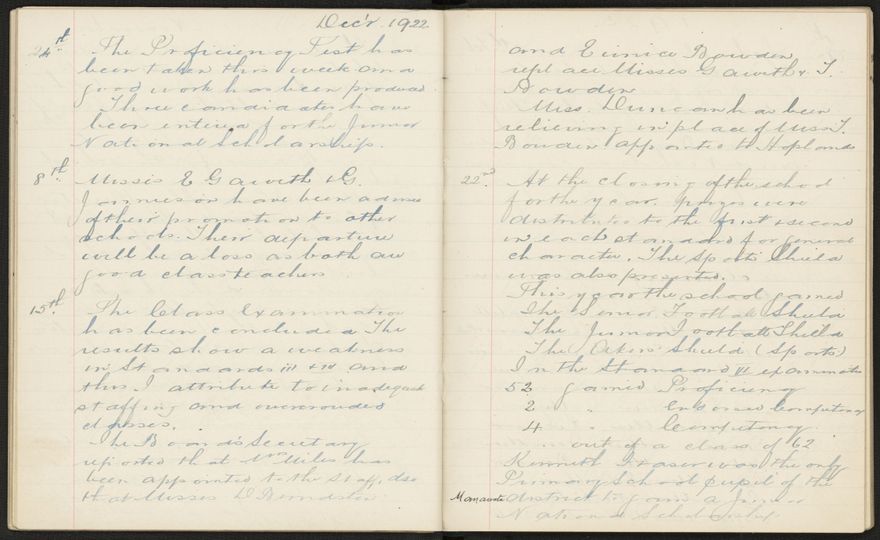 Dec'r. 1922
The Proficiency Test has
been taken this week and
good work has been produced
Three candidates have
been entered for the Junior
National Scholarships.
8th. Misses E Gawith & G.
Jamieson have been advised
of their promotion to other
schools. Their departure
will be a loss as both are
good class teachers
15th. The Class Examination
has been concluded. The
results show a weakness
in Standards III & IV and
this I attribute to inadequate
staffing and overcrowded
classes.
The Board's Secretary
reported that Mrs Miles has
been appointed to the staff, also
that Misses D
and Eunice Bowden
replace Misses Gawith & J.
Bowden
Miss. Duncan has been
relieving in place of Miss J.
Bowden appointed to
22nd. At the closing of the school
for the year prizes were
distributed to the first & second
in each standard for general
character. The Sports Shield
was also presented.
This year the school gained
The Senior Football Shield
The Junior Football Shield
The Shield (Sports)
In the Standard VI examination
52 gained Proficiency
2 " Endorsed Competency
4 " Competency
out of a class of 62
Kenneth Fraser was the only
Primary School pupil of the
Manawatu district to gain a Junior
National Scholarship